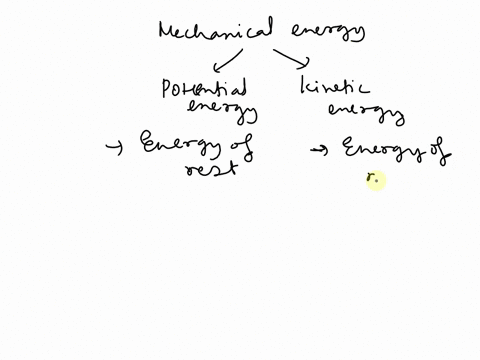 Mechanical energy
Potential energy
kinetic energy
→ Energy of rest
→ Energy of